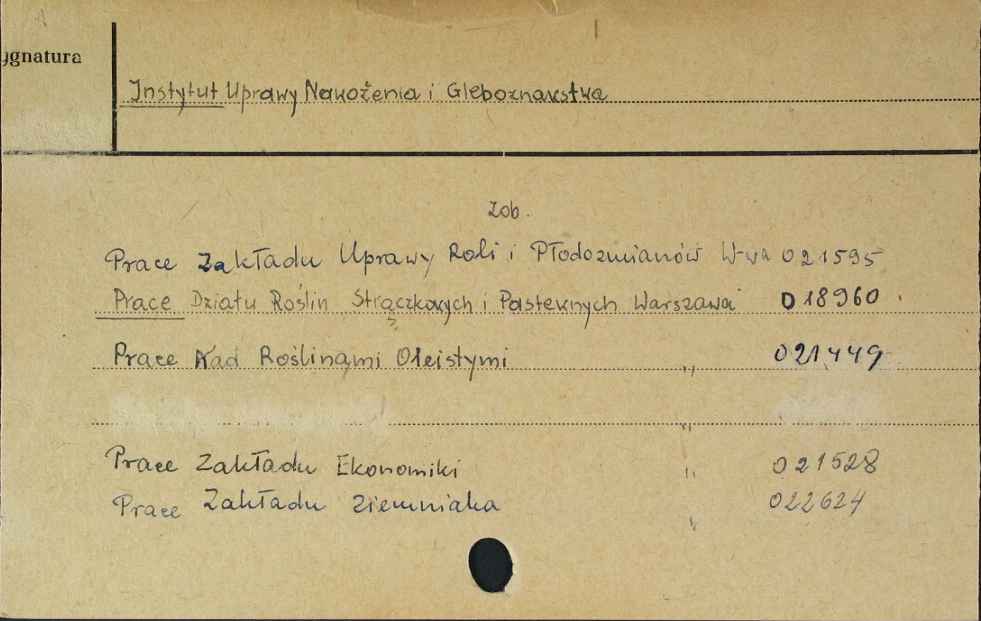 ygnatura
Instytut Uprawy Nawożenia i Gleboznawstwa
Zob.
Prace Zakładu Uprawy Roli i Płodozmianów W-wa 021595
Prace Działu Roślin Strączkowych i Pastewnych Warszawa 018960.
Prace Nad Roślinami Oleistymi " 021449
"
Prace Zakładu Ekonomiki " 021528
Prace Zakładu Ziemniaka " 022624